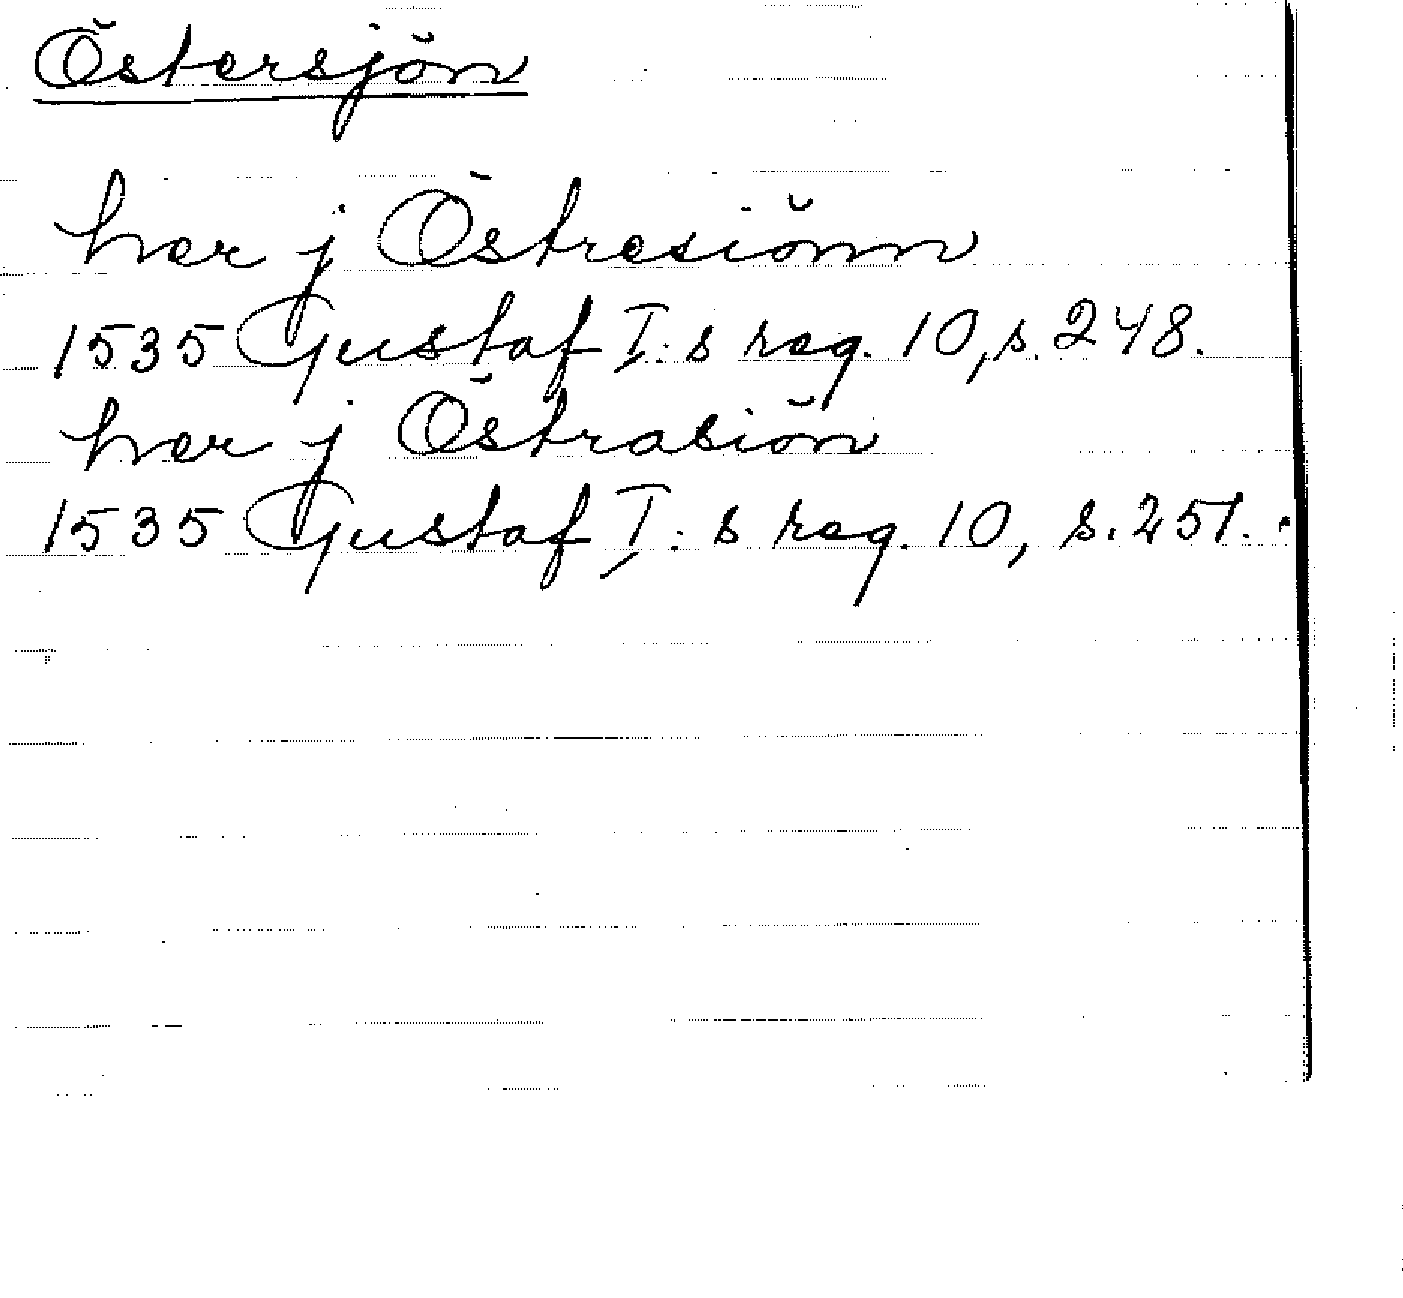 Östersjön
her j Östresiönn
1535 Gustaf I:s reg. 10, s. 248.
her j Östrasiön
1535 Gustaf I:s reg. 10, s. 251.